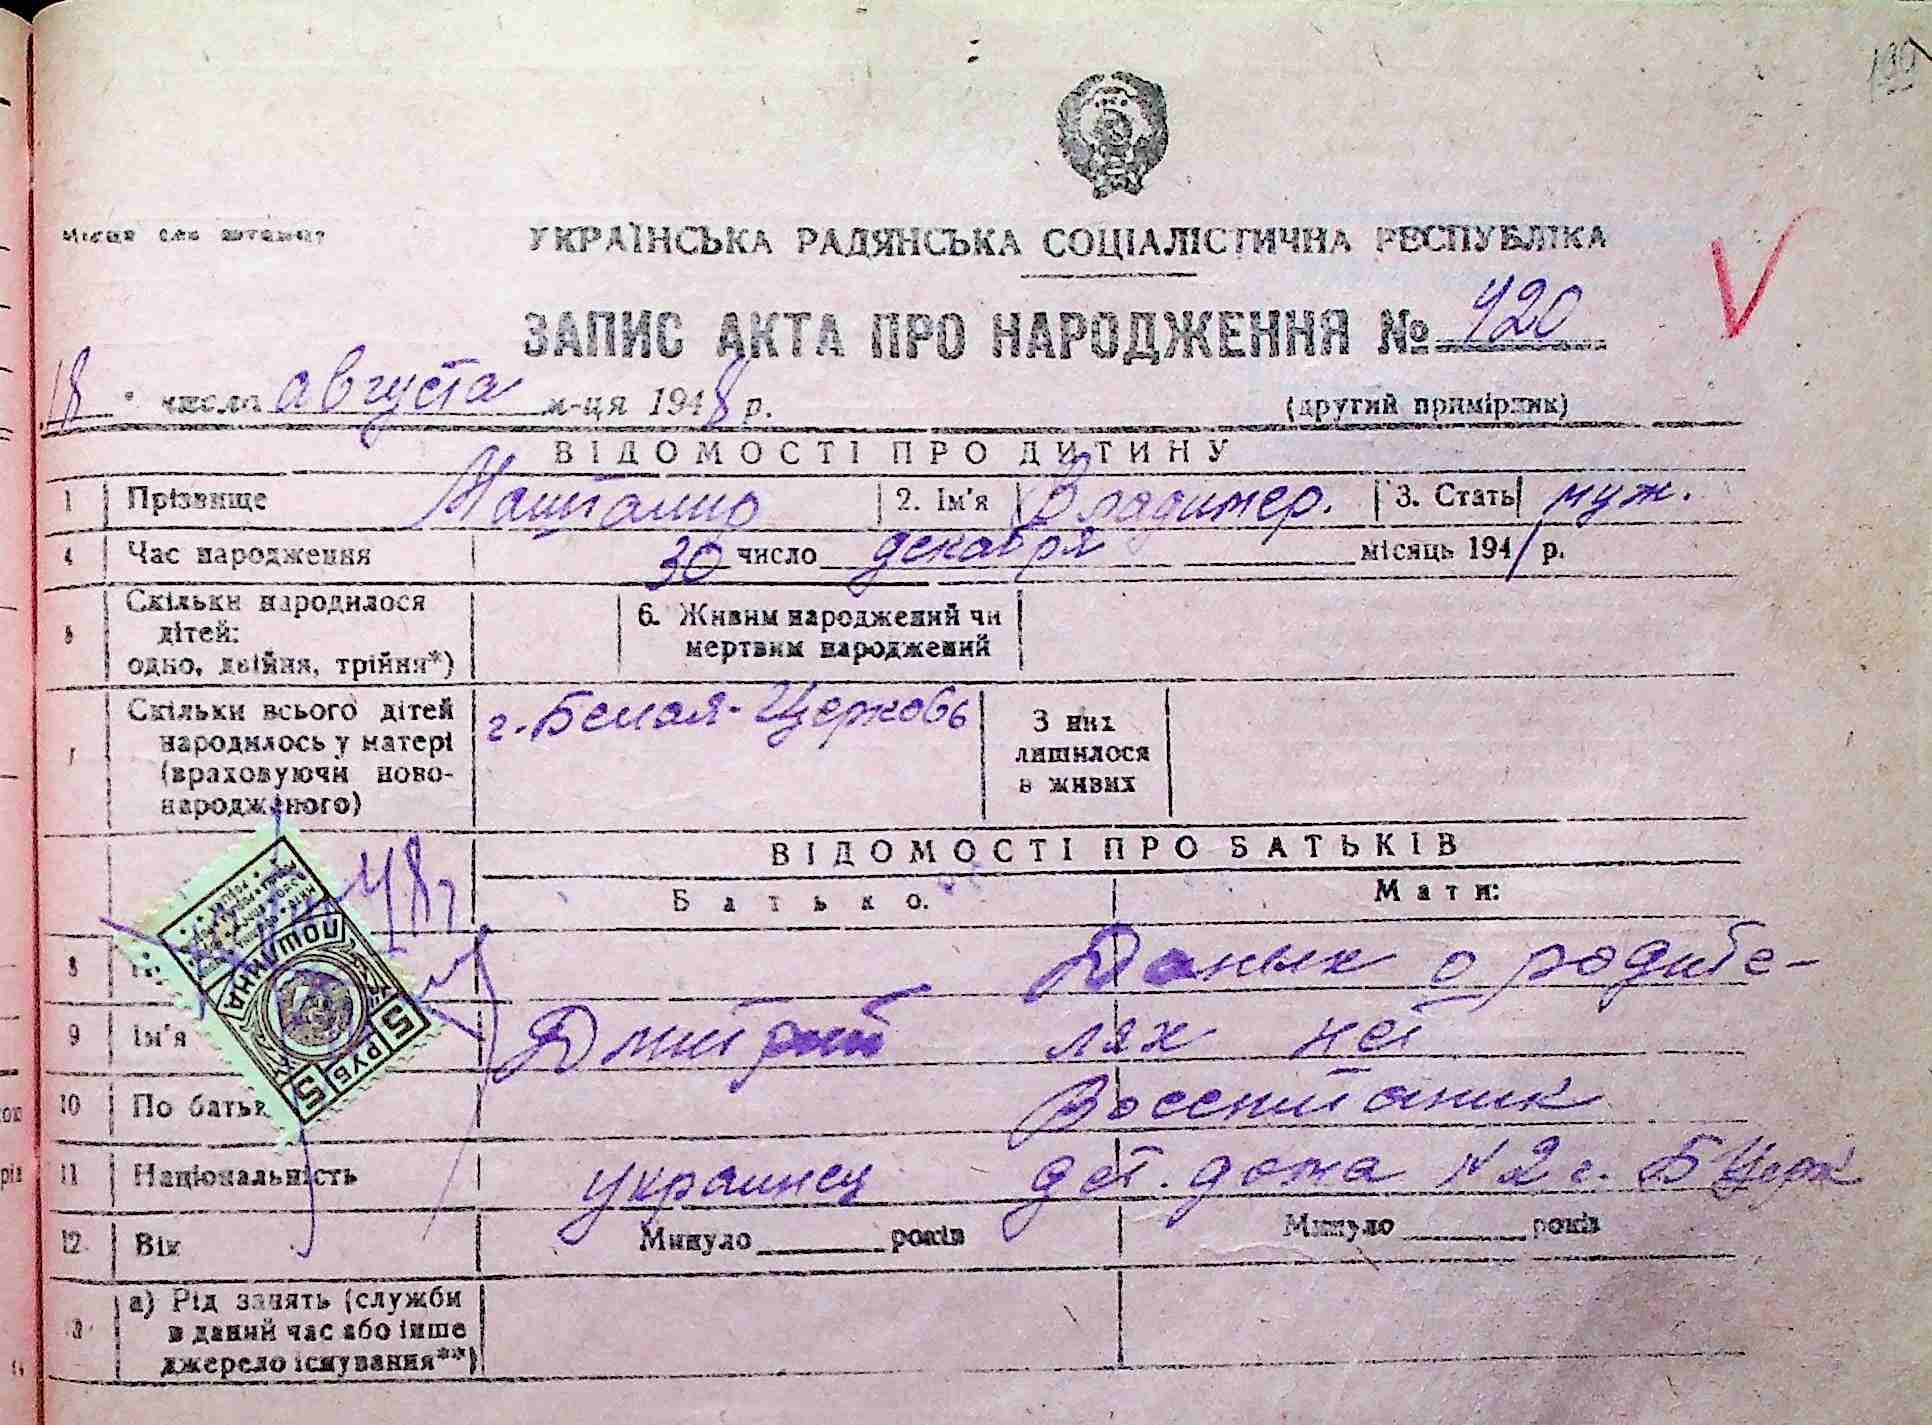 199
Місце для штампу
УКРАЇНСЬКА РАДЯНСЬКА СОЦІАЛІСТИЧНА РЕСПУБЛІКА
ЗАПИС АКТА ПРО НАРОДЖЕННЯ № 420
18 " числа августа м-ця 1948 р. (другий примірник)
ВІДОМОСТІ ПРО ДИТИНУ
1 Прізвище Машталир 2. Ім'я Владимер. 3. Стать муж.
4 Час народження 30 число декабря місяць 1941 р.
5 Скільки народилося дітей: одно, двійня, трійня*) 6. Живим народжений чи мертвим народжений
7 Скільки всього дітей народилось у матері (враховуючи новонародженого) г. Белая-Церковь З них лишилося в живих
ВІДОМОСТІ ПРО БАТЬКІВ
Батько. Мати:
48г
ПОШЛИНА
5 РУБ 5
8 Даных о родите-
9 Ім'я Дмитрий лях нет
10 По батьк Воспитаник
11 Національність украинец дет. дома №2 г. Б Церк
12 Вік Минуло років Минуло років
а) Рід занять (служби в даний час або інше джерело існування**)